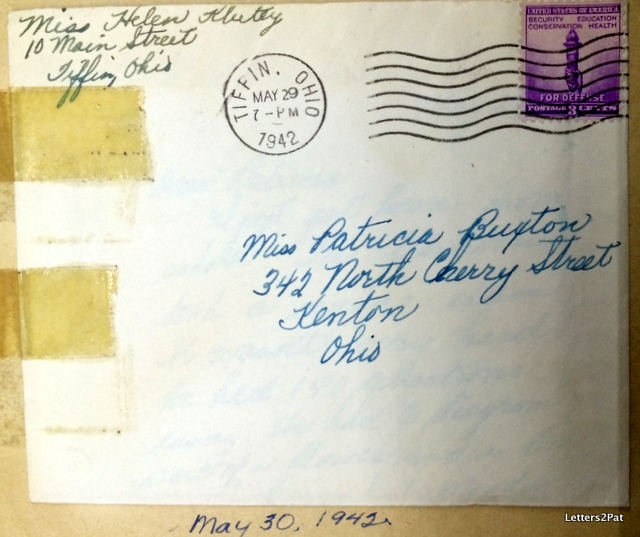 Miss Helen Klutey
10 Main Street
Tiffin, Ohio
TIFFIN, OHIO
MAY 29
7-PM
1942
UNITED STATES OF AMERICA
SECURITY EDUCATION
CONSERVATION HEALTH
FOR DEFENSE
POSTAGE 3 CENTS
Miss Patricia Buxton
342 North Cherry Street
Kenton
Ohio
May 30, 1942.
Letters2Pat